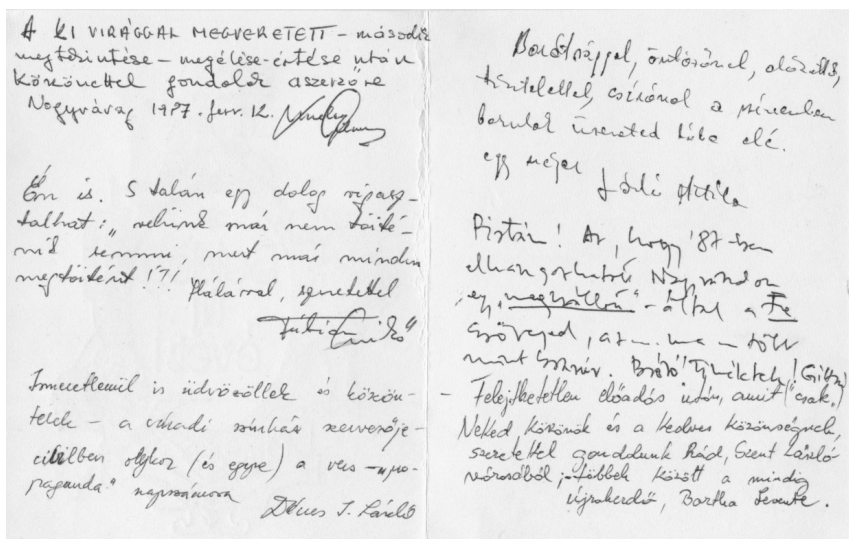 A KI VIRÁGGAL MEGVERETETT – második
megtekintése – megélése-értése után
köszönettel gondolok a szerzőre
Nagyvárad 1987. febr. 12.
Én is. S talán egy dolog vigasz-
talhat: "velünk már nem törté-
nik semmi, mert már minden
megtörtént!?! Hálával, szeretettel
Fábián Enikő
Ismeretlenül is üdvözöllek és köszön-
telek – a váradi színház szervezője-
ként olykor (és egyre) a vers-"pro-
paganda" napszámosa
Dénes I. László
tisztelettel, a szívemben
borulok lába elé.
egy néger
Attila
Pistám! Az, hogy '87-ben
elhangozhatott Nagyváradon
egy "megszállott" által a Te
szöveged, az ma – több
mint
Felejthetetlen előadás után, amit ("csak")
Neked köszönök és a kedves közönségnek,
szeretettel gondolunk Rád, Szent László
városából, többek között a mindig
újrakezdő, Bartha Levente.